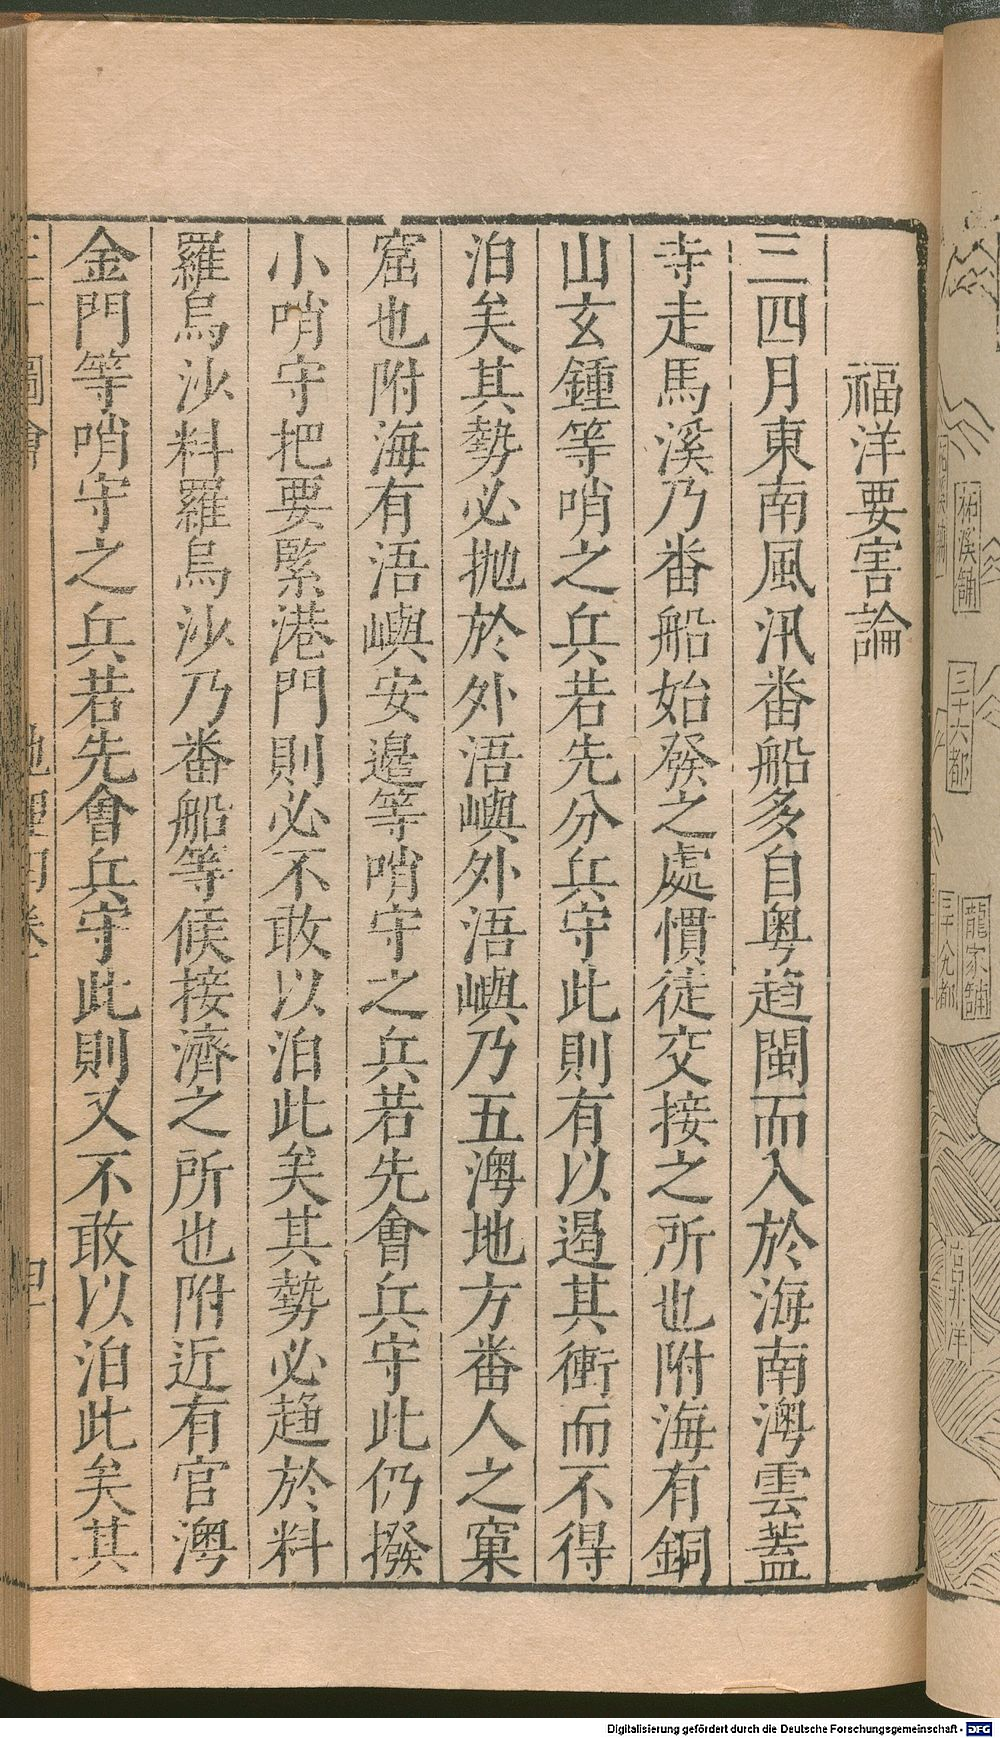 福洋要害論
三四月東南風汛番船多自粵趋閩而入於海南澳雲蓋
寺走馬溪乃番船始發之處慣徒交接之所也附海有銅
山玄鍾等哨之兵若先分兵守此則有以遏其衝而不得
泊矣其勢必拋於外浯嶼外浯嶼乃五澳地方番人之窠
窟也附海有浯嶼安邉等哨守之兵若先會兵守此仍撥
小哨守把要緊港門則必不敢以泊此矣其勢必趋於料
羅烏沙料羅烏沙乃番船等候接濟之所也附近有官澳
金門等哨守之兵若先會兵守此則又不敢以泊此矣其
祐溪舖
三十六都
龍家舖
Digitalisierung gefördert durch die Deutsche Forschungsgemeinschaft - DFG